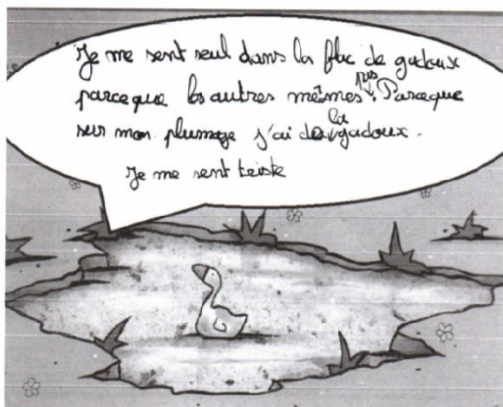 Je me sent seul dans la flac de gadoux
parceque les autres mêmes pas. Parceque
sur mon plumage j'ai de la gadoux.
Je me sent triste